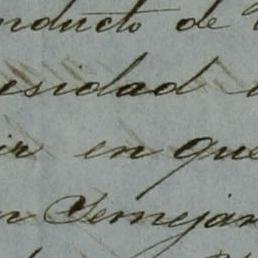 nducto de
esidad
ir en que
n Semejan